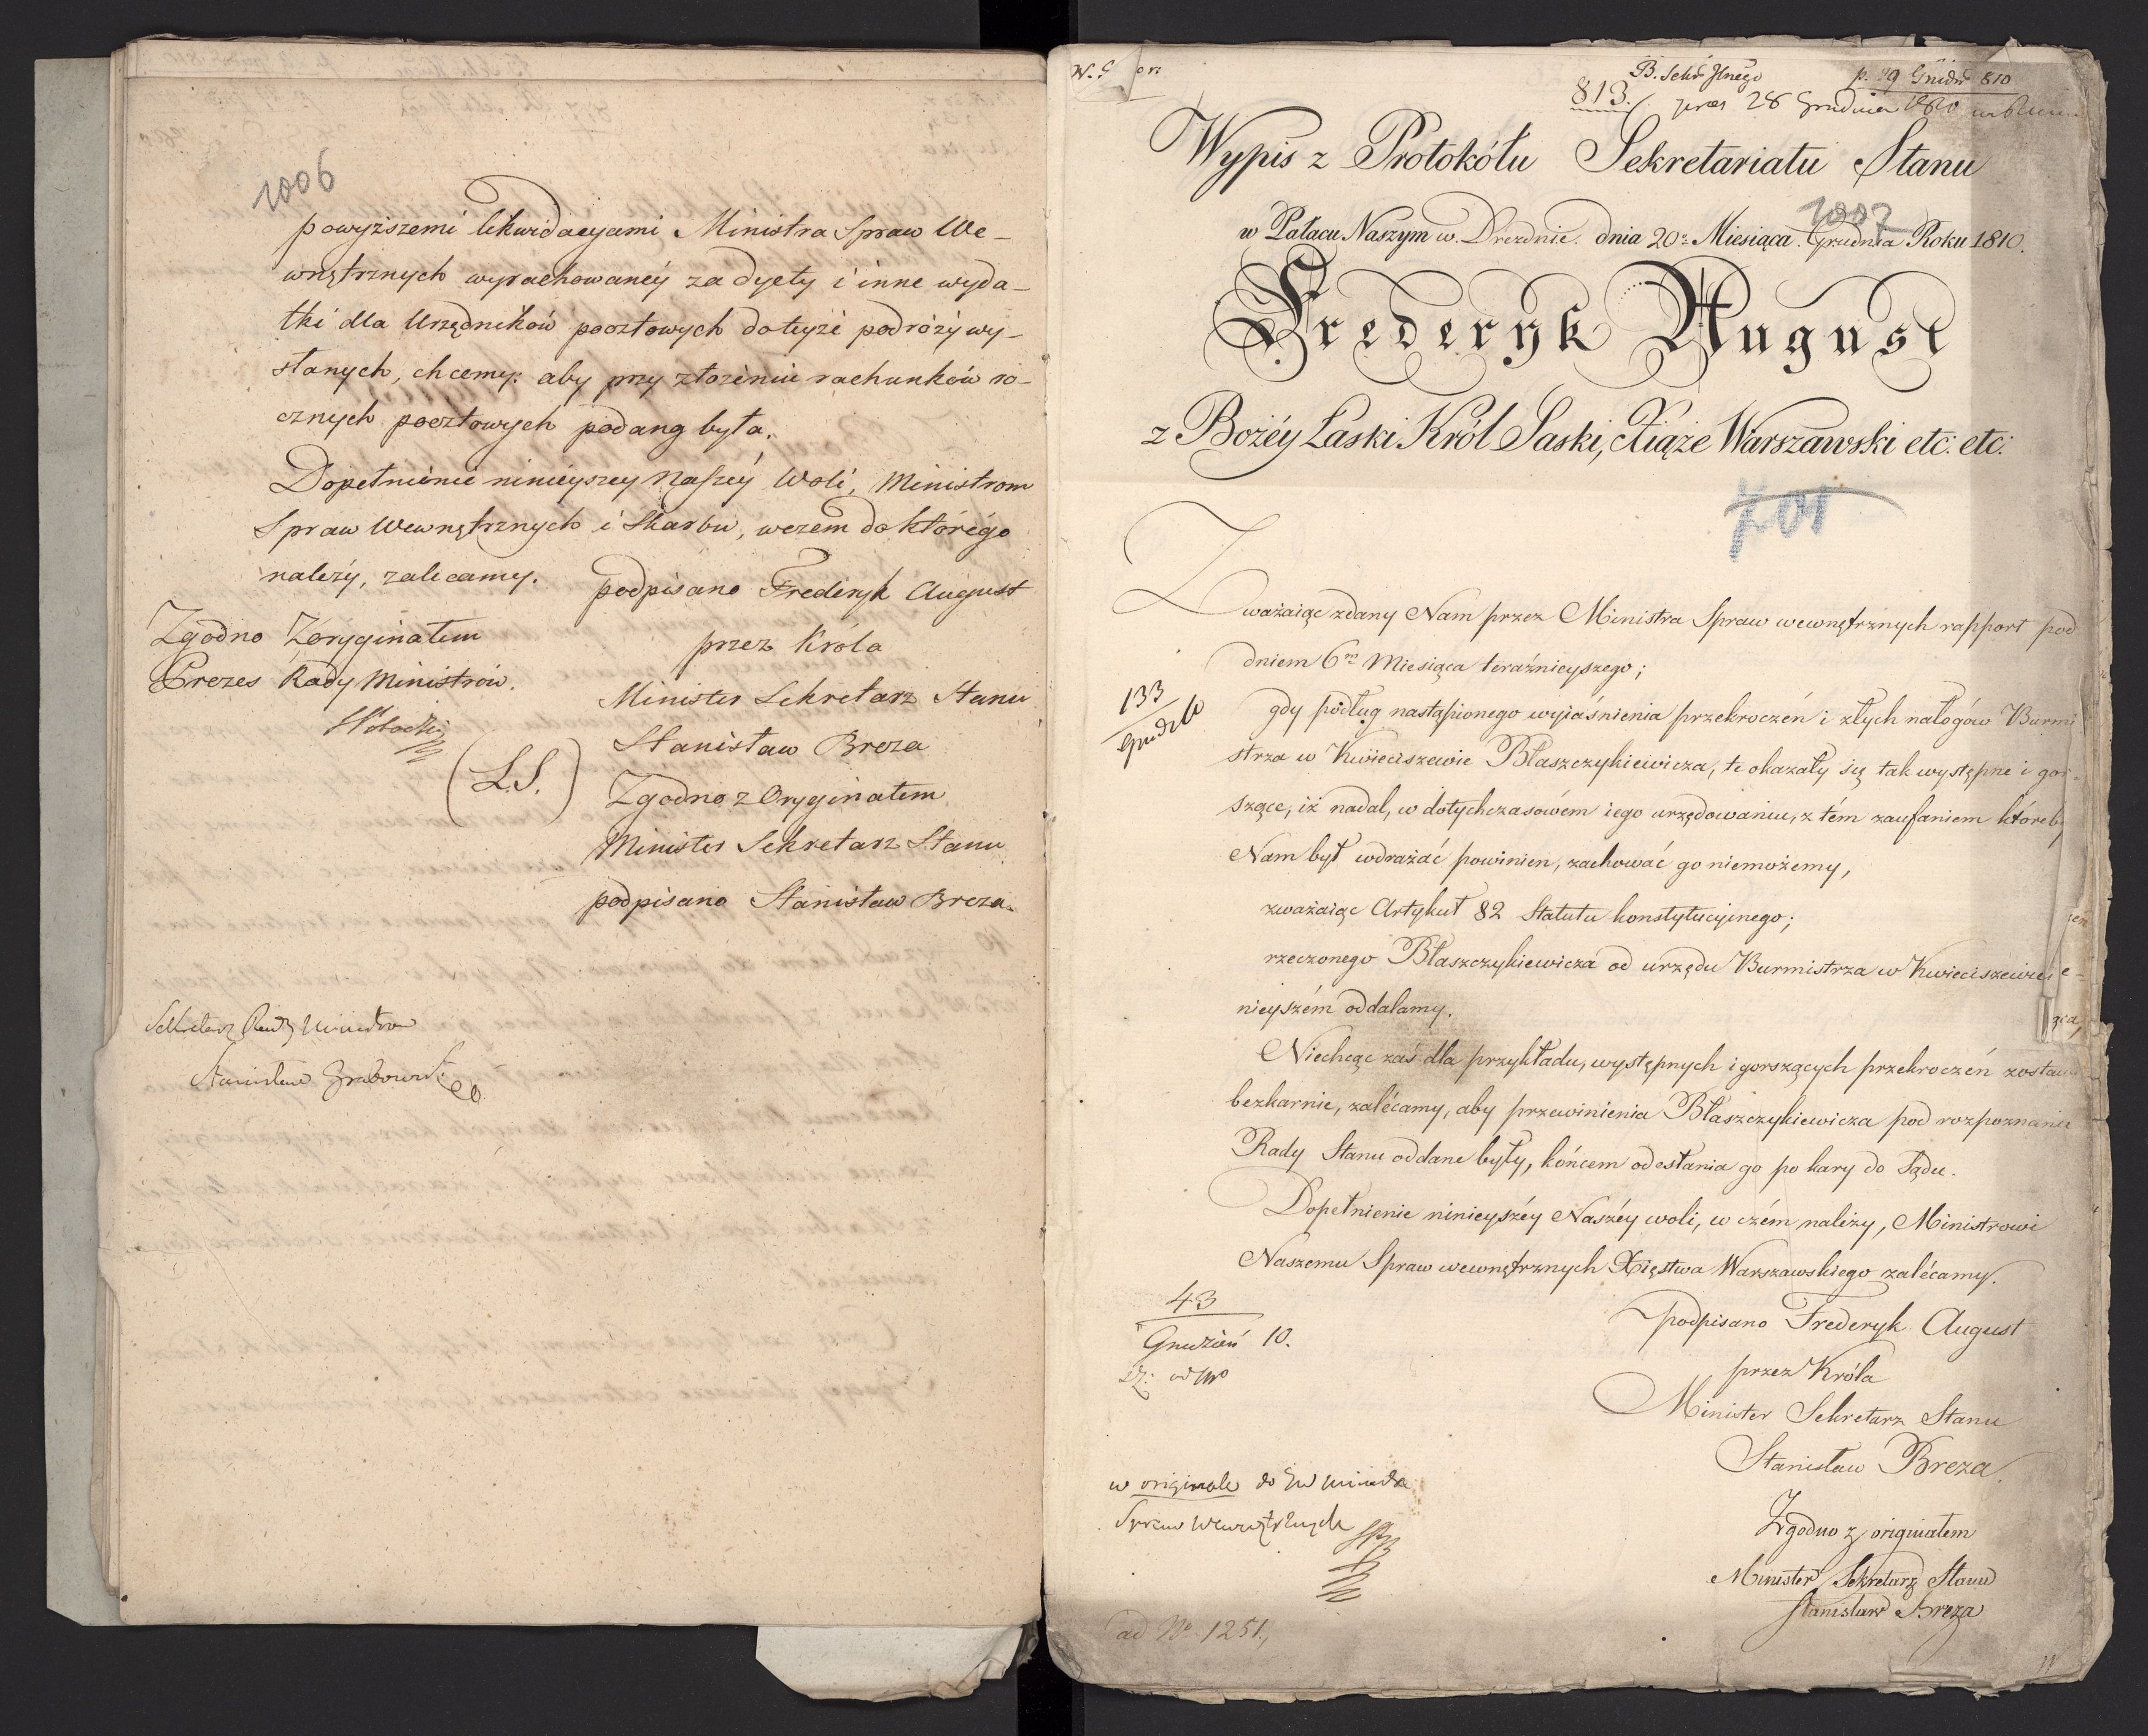 1006
powyższemi likwidacyami Ministra Spraw We-
wnętrznych wyrachowanéy za dyety i inne wyda-
tki dla Urzędników pocztowych do teyże podróży wy-
słanych, chcemy: aby przy złożeniu rachunków ro-
cznych pocztowych podaną była.
Dopełnienie ninieyszey Naszéy Woli, Ministrom
Spraw Wewnętrznych i Skarbu, wczem do którégo
należy, zalecamy.
podpisano Frederyk August
przez Króla
Minister Sekretarz Stanu
Stanisław Breza
(L.S.)
Zgodno z Oryginałem
Minister Sekretarz Stanu
podpisano Stanisław Breza
Zgodno Zoryginałem
Prezes Rady Ministrów.
Sekretarz Rady Ministrów
Stanisław Grabowski
813.
p. 29 Grudn 810
28 Grudnia 1810
Wypis z Protokółu Sekretariatu Stanu
1007
w Pałacu Naszym w. Dreznie. dnia 20º Miesiąca. Grudnia Roku 1810.
Frederyk August
z Bożéy Łaski Król Saski, Xiąże Warszawski etc: etc:
701
Zważaiąc zdany Nam przez Ministra Spraw wewnętrznych rapport pod
dniem 6m Miesiąca teraźnieyszego;
133
gdy podług nastąpionego wyiaśnienia przekroczeń i złych nałogów Burmi
strza w Kwieciszewie Błaszczykiewicza, te okazały się tak występne i gor-
szące, iż nadal, w dotychczasowém iego urzędowaniu, z tém zaufaniem któreb
Nam był wdrażać powinien, zachować go niemożemy,
zważaiąc Artykuł 82 Statutu konstytucyinego;
rzeczonego Błaszczykiewicza od urzędu Burmistrza w Kwieciszewie
nieyszém oddalamy.
Niechcąc zaś dla przykładu, występnych i gorszących przekroczeń zosta
bezkarnie, zalécamy, aby przewinienia Błaszczykiewicza pod rozpoznanie
Rady Stanu oddane były, końcem odesłania go po kary do Sądu.
Dopełnienie ninieyszéy Naszéy woli, w czém należy, Ministrowi
Naszemu Spraw wewnętrznych Xięstwa Warszawskiego zalécamy.
43
Grudzień 10.
podpisano Frederyk August
przez Króla
Minister Sekretarz Stanu
Stanisław Breza
w originale do
Spraw Wewnętrznych
Zgodno z originałem
Minister Sekretarz Stanu
Stanisław Breza
ad Nº 1251.